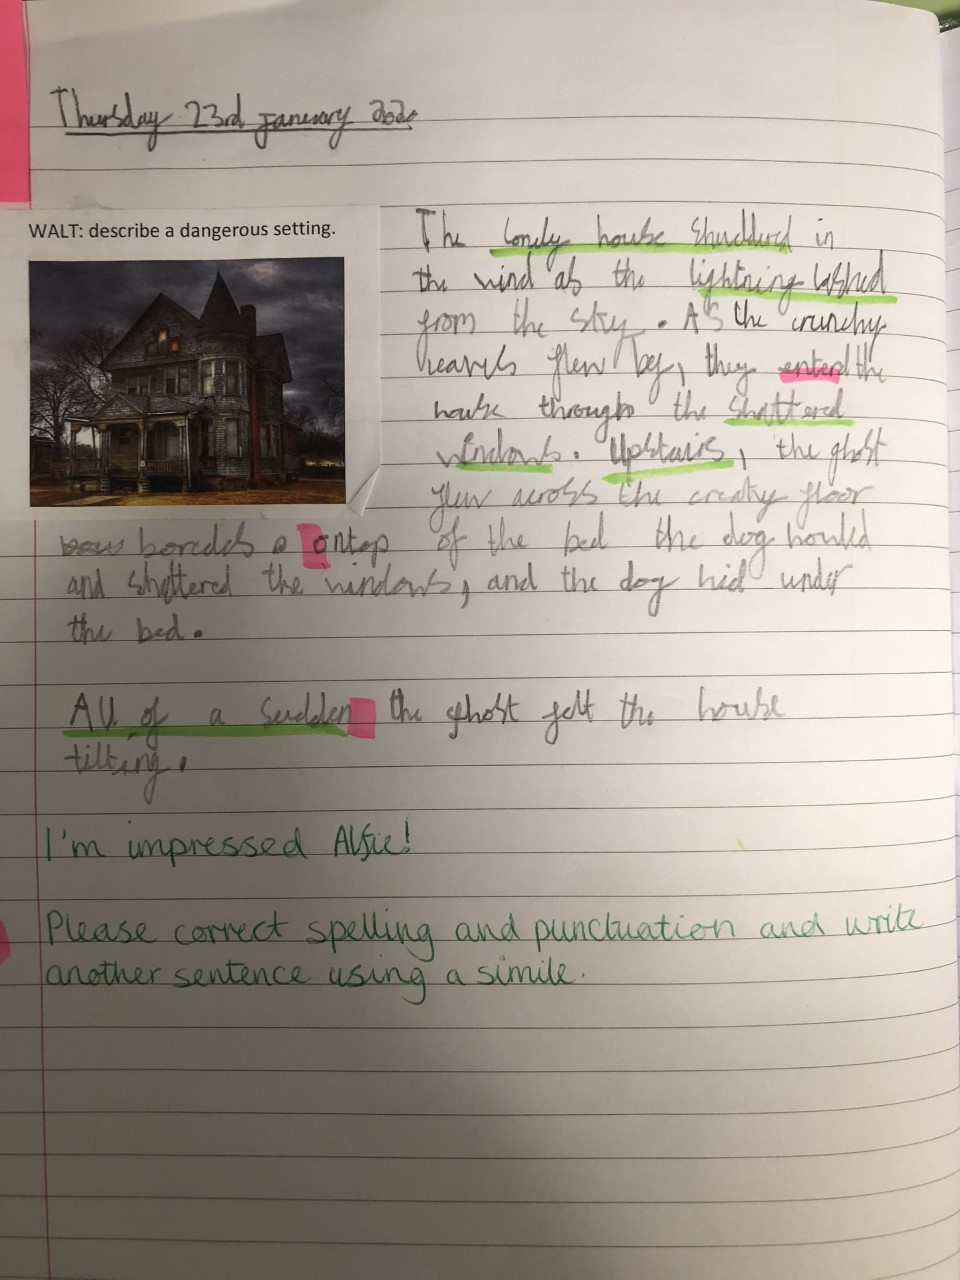 Thursday 23rd janeuary 2020
WALT: describe a dangerous setting.
The lonely house shuddered in
the wind as the lightning lashed
from the sky. As the crunchy
leaves flew by, they enterd the
house through the shattered
windows. Upstairs, the ghost
flew across the creaky floor
boredds ontop of the bed the dog hould
and shattered the windows, and the dog hid under
the bed.
All of a sudden the ghost felt the house
tilting.
I'm impressed Alfie!
Please correct spelling and punctuation and write
another sentence using a simile.